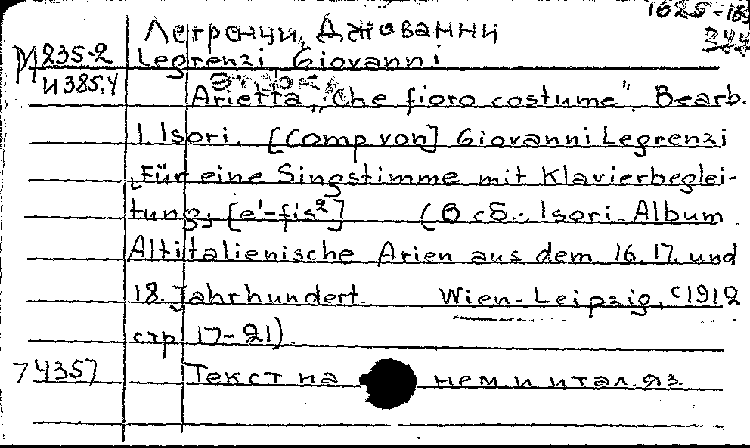 Легренци, Джованни
Legrenzi, Giovanni
235-2
И 385.4
Arietta „Che fioro costume". Bearb.
I. Isori. [Comp. von] Giovanni Legrenzi
Für eine Singstimme mit Klavierbeglei-
tung, [e'-fis²] (В сб.: Isori-Album
Altitalienische Arien aus dem 16. 17. und
18. Jahrhundert. Wien-Leipzig, c1912
стр 17-21)
74357
Текст на нем и итал яз.